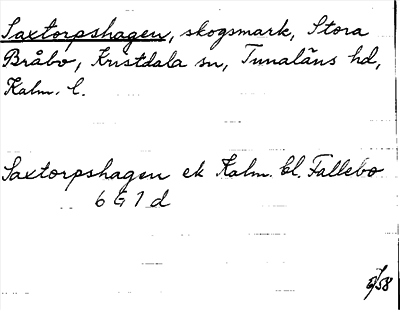 Saxtorpshagen, skogsmark, Stora
Bråbo, Kristdala sn, Tunaläns hd,
Kalm. l.
Saxtorpshagen ek Kalm. bl. Fallebo
6 G 1 d